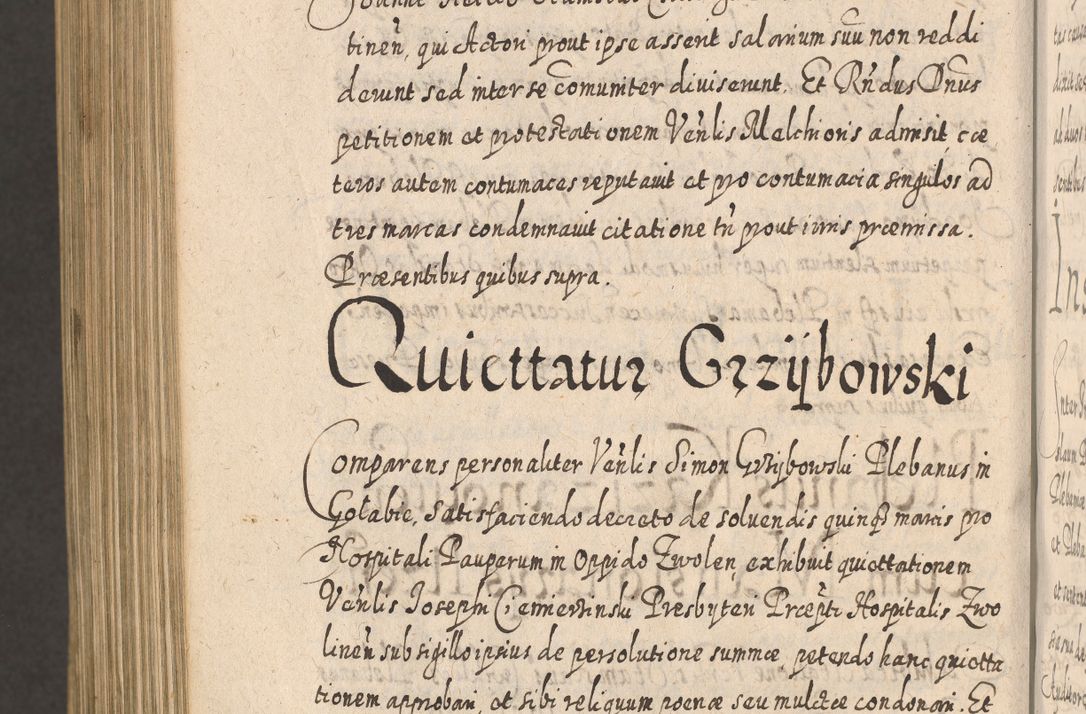 tineñ, qui Actori prout ipse asserit salarium suũ non reddi
derunt sed inter se comuniter diviserunt. Et Rñdus Dnus
petitionem et protestationem Veñlis Melchioris admisit, cæ
teros autem contumaces reputavit et pro contumacia singulos ad
tres marcas condemnavit citatione tñ prout iuris præmissa.
Præsentibus quibus supra.
Quiettatur Grzijbowski
Comparens personaliter Veñlis Simon Grzijbowski Plebanus in
Gołabie, satisfaciendo decreto de solvendis quinqȝ marcis pro
Hospitali Pauperum in Oppido Zwolen, exhibuit quiettationem
Veñlis Joseph Presbyteri Præpti Hospitalis Zwo
lineñ sub sigillo ipsius de persolutione summæ, petendo hanc quietta
tionem approbari, et sibi reliquum poenæ seu mulctæ condonari. Et